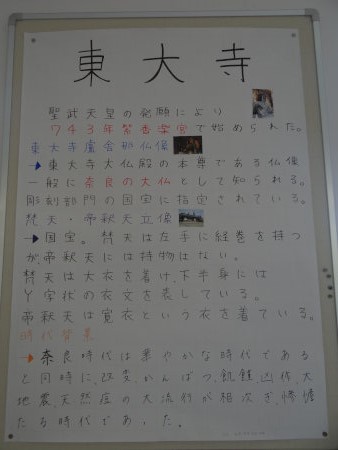 東大寺
聖武天皇の発願により
743年紫香楽宮で始められた。
東大寺盧舎那仏像
→東大寺大仏殿の本尊である仏像
一般に奈良の大仏として知られる。
彫刻部門の国宝に指定されている。
梵天・帝釈天立像
→国宝。梵天は左手に経巻を持つ
が帝釈天には持物はない。
梵天は大衣を着け、下半身には
Y字状の衣文を表している。
帝釈天は寛衣という衣を着ている。
時代背景
→奈良時代は華やかな時代である
と同時に、政変、かんばつ、飢饉、凶作、大
地震、天然痘の大流行が相次ぎ、惨憺
たる時代であった。